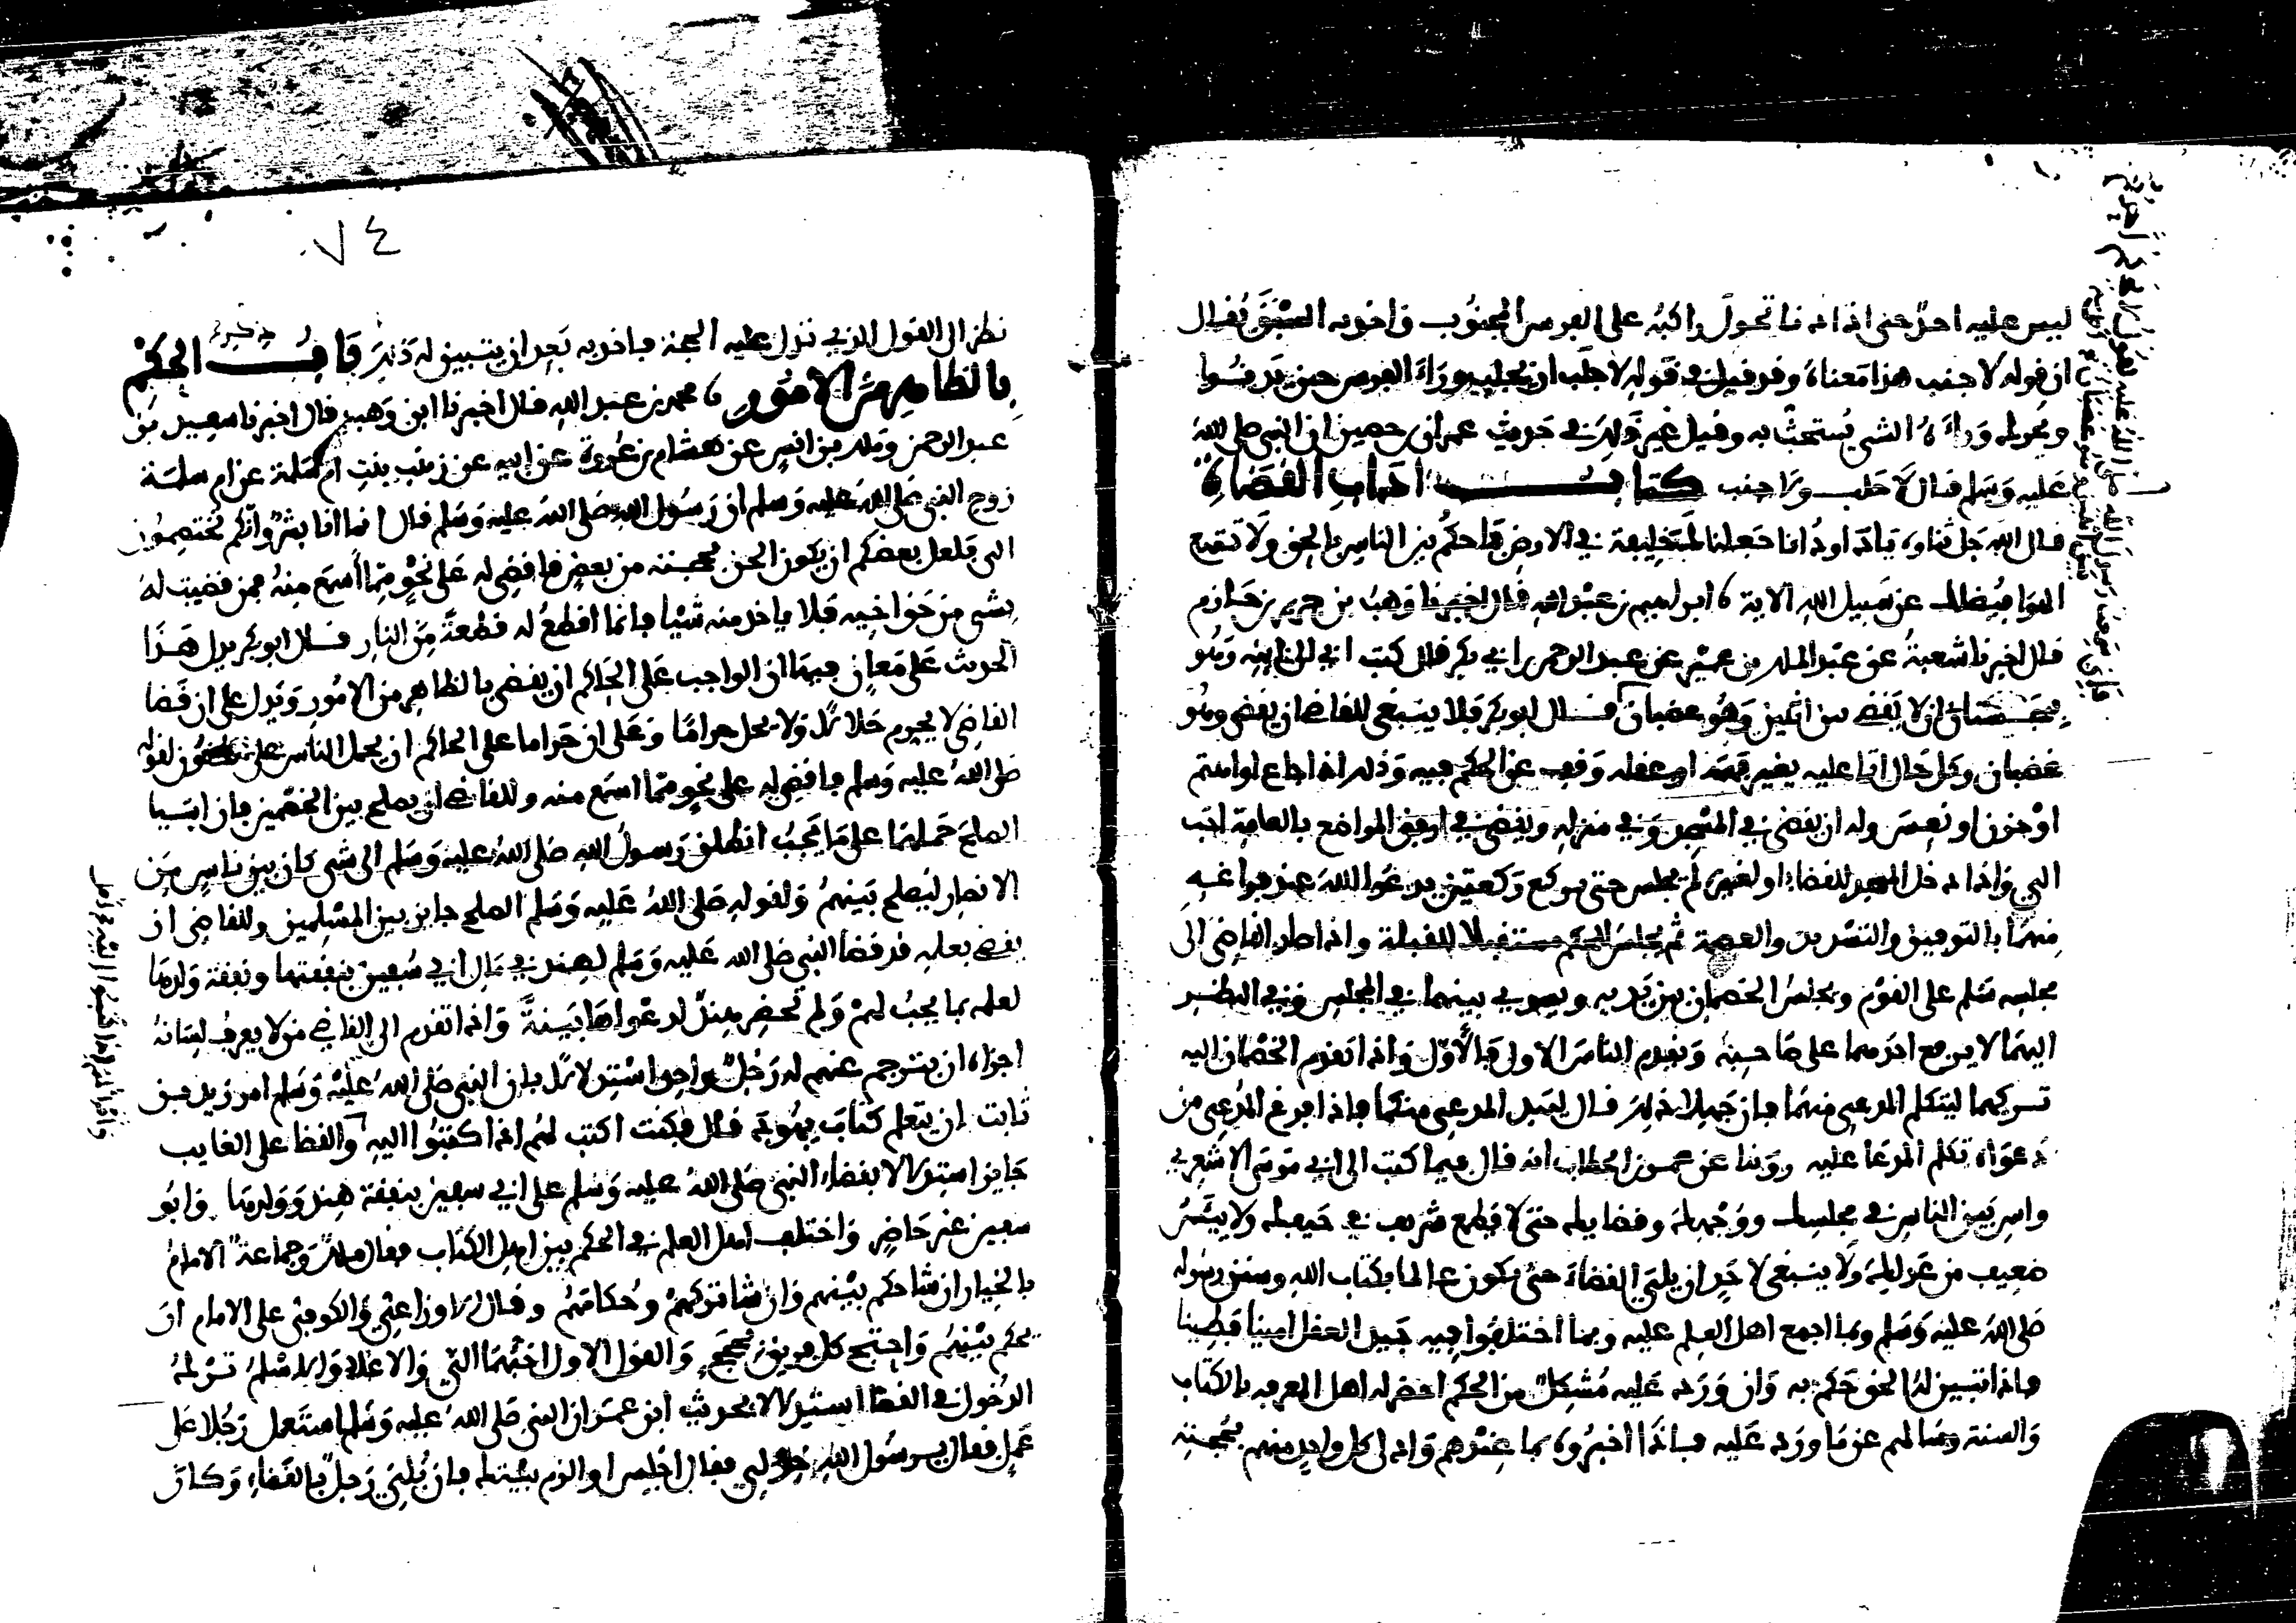 ليس عليه احد حتى اذا دنا تحول راكبه على الفرس المجنوب واخذ به السبق يقال
ان قوله لا جنب هذا معناه وقد قيل في قوله لا جلب ان يجلب وراء الفرس حين
ويحرك وراءه الشي يستحث به وقيل غير ذلك في حديث عمران بن حصين ان النبي صلى الله
عليه وسلم قال لا جلب ولا جنب كتاب اداب القضاة
قال الله جل ثناوه ياداود انا جعلناك خليفة في الارض فاحكم بين الناس بالحق ولا تتبع
الهوا فيضلك عن سبيل الله الاية ابراهيم بن عبد الله قال اخبرنا وهب بن جرير بن حازم
قال اخبرنا شعبة عن عبد الملك بن عمير عن عبد الرحمن بن ابي بكر قال كتب ابي الى ابنه وهو
بسجستان ان لا تقضي بين اثنين وهو غضبان قال ابو بكر فلا ينبغي للقاضي ان يقضي وهو
غضبان وكل حال اتا عليه يغير فهمه او عقله وقف عن الحكم فيه وذلك اذا جاع او اهتم
او حزن او نعس وله ان يقضي في المسجد وفي منزله ويقضي في ارفق المواضع بالعامة احب
الي واذا دخل المسجد للقضاء او لغيره لم يجلس حتى يركع ركعتين يدعوا الله عند فراغه
منهما بالتوفيق والتسديد والعصمة ثم يجلس للحكم مستقبلا للقبلة واذا صار القاضي الى
مجلسه سلم على القوم ويجلس الخصمان بين يديه ويسوي بينهما في المجلس وفي النظر
اليهما لا يرفع احدهما على صاحبه ويقدم الناس الاول فالاول واذا تقدم الخصمان اليه
تركهما ليتكلم المدعي منهما فان جهلا ذلك قال ليتبد المدعي منكما فاذا فرغ المدعي من
دعواه تكلم المدعا عليه روينا عن عمر بن الخطاب انه قال فيما كتب الى ابي موسى الاشعري
واس بين الناس في مجلسك ووجهك وقضايك حتى لا يطمع شريف في حيفك ولا ييئس
ضعيف من عدلك ولا ينبغي لاحد ان يلي القضاء حتى يكون عالما بكتاب الله وسنن رسوله
صلى الله عليه وسلم وبما اجمع اهل العلم عليه وبما اختلفوا فيه جيد العقل امينا فطينا
فاذا تبين له الحق حكم به وان ورد عليه مشكل من الحكم احضر له اهل المعرفة بالكتاب
والسنة وسالهم عن ما ورد عليه فاذا اخبروه بما عندهم وادلى كل واحد منهم بحجته
٧٤
نظر الى القول الذي تدل عليه الحجة فاخذ به بعد ان يتبين له ذلك باب ذكر الحكم
بالظاهر من الامور محمد بن عبد الله قال اخبرنا ابن وهب قال اخبرنا سعيد بن
عبد الرحمن وملك بن انس عن هشام بن عروة عن ابيه عن زينب بنت ام سلمة عن ام سلمة
زوج النبي صلى الله عليه وسلم ان رسول الله صلى الله عليه وسلم قال انما انا بشر وانكم تختصمون
الي فلعل بعضكم ان يكون الحن بحجته من بعض فاقضي له على نحو مما اسمع منه فمن قضيت له
بشي من حق اخيه فلا ياخذ منه شيا فانما اقطع له قطعة من النار قال ابو بكر يدل هذا
الحديث على معان فيها ان الواجب على الحاكم ان يقضي بالظاهر من الامور ويدل على ان قضا
القاضي لا يحرم حلالا ولا يحل حراما وعلى ان حراما على الحاكم ان يحمل الناس على الظنون لقوله
صلى الله عليه وسلم فاقضي له على نحو مما اسمع منه وللقاضي ان يصلح بين الخصمين فان ابيا
الصلح حملهما على ما يجب انطلق رسول الله صلى الله عليه وسلم الى شي كان بين ناس من
الانصار ليصلح بينهم ولقوله صلى الله عليه وسلم الصلح جايز بين المسلمين وللقاضي ان
يقضي بعلمه قد قضا النبي صلى الله عليه وسلم لهند في مال ابي سفين بنفقتها ونفقة ولدها
لعلمه بما يجب لهم ولم تحضر هند لدعواها بينة واذا تقدم الى القاضي من لا يعرف لسانه
اجزاه ان يترجم عنهم له رجل واحد استدلالا بان النبي صلى الله عليه وسلم امر زيد بن
ثابت ان يتعلم كتاب يهود قال فكنت اكتب لهم اذا كتبوا اليه والقضا على الغايب
جايز استدلالا بقضاء النبي صلى الله عليه وسلم على ابي سفين بنفقة هند وولدها وابو
سفين غير حاضر واختلف اهل العلم في الحكم بين اهل الكتاب فقال ملك وجماعة الامام
بالخيار ان شا حكم بينهم وان شا تركهم وحكامهم وقال الاوزاعي والكوفي على الامام ان
يحكم بينهم واحتج كل فريق بحجج والقول الاول احبهما الي والاعلا والاسلم ترك
الدخول في القضا استدلالا بحديث ابن عمر ان النبي صلى الله عليه وسلم استعمل رجلا على
عمل فقال يرسول الله خر لي فقال اجلس او الزم بيتك فان بلي رجل بالقضاء وكان